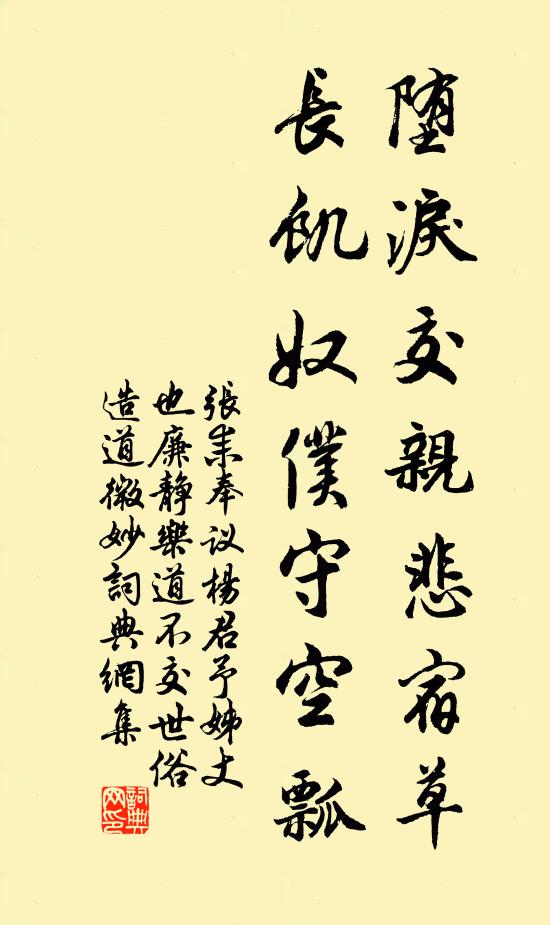 堕淚交親悲宿草
長飢奴僕守空瓢
張耒奉议楊君予姊丈
也廉靜樂道不交世俗
造道微妙詞典網集
詞典
网印